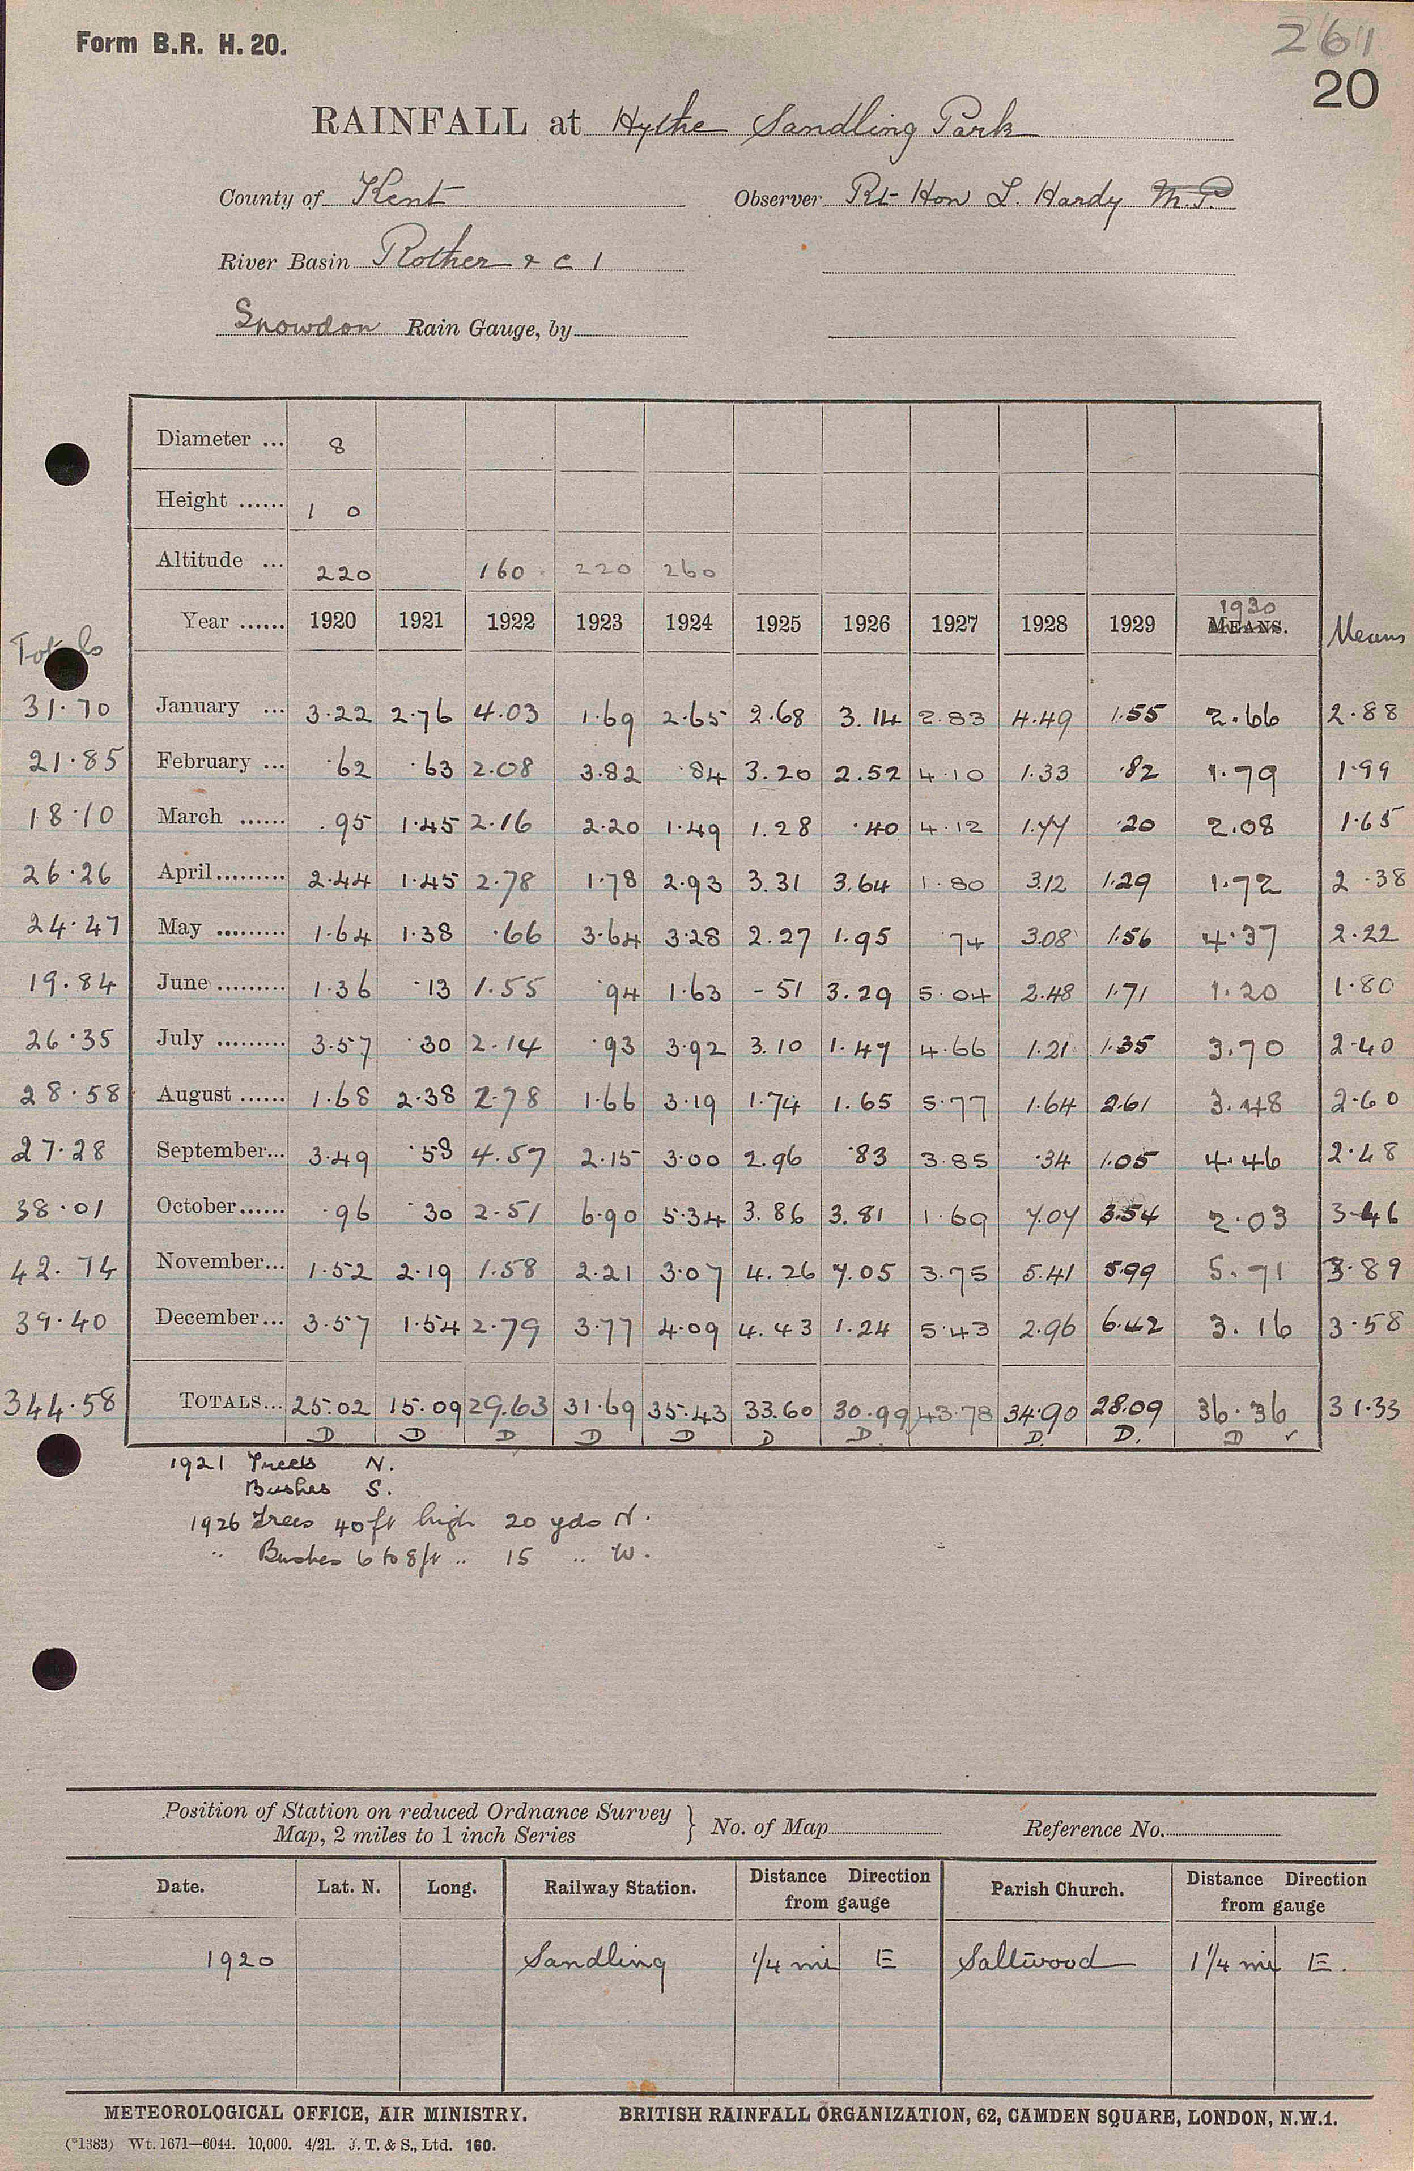 Form B.R. H. 20.
261
20
RAINFALL at Hythe Sandling Park
County of Kent Observer Rt Hon L. Hardy M.P.
River Basin Rother & C 1
Snowdon Rain Gauge, by
Diameter ... 8
Height ...... 1 0
Altitude ... 220 160 220 260
Totals Year ...... 1920 1921 1922 1923 1924 1925 1926 1927 1928 1929 1930 MEANS. Means
31.70 January ... 3.22 2.76 4.03 1.69 2.65 2.68 3.14 2.83 4.49 1.55 2.66 2.88
21.85 February ... .62 .63 2.08 3.82 .84 3.20 2.52 4.10 1.33 .82 1.79 1.99
18.10 March ...... .95 1.45 2.16 2.20 1.49 1.28 .40 4.12 1.77 .20 2.08 1.65
26.26 April ......... 2.44 1.45 2.78 1.78 2.93 3.31 3.64 1.80 3.12 1.29 1.72 2.38
24.47 May ......... 1.64 1.38 .66 3.64 3.28 2.27 1.95 .74 3.08 1.56 4.37 2.22
19.84 June ......... 1.36 .13 1.55 .94 1.63 .51 3.29 5.04 2.48 1.71 1.20 1.80
26.35 July ......... 3.57 .30 2.14 .93 3.92 3.10 1.47 4.66 1.21 1.35 3.70 2.40
28.58 August ...... 1.68 2.38 2.78 1.66 3.19 1.74 1.65 5.77 1.64 2.61 3.48 2.60
27.28 September... 3.49 .58 4.57 2.15 3.00 2.96 .83 3.85 .34 1.05 4.46 2.48
38.01 October...... .96 .30 2.51 6.90 5.34 3.86 3.81 1.69 7.07 3.54 2.03 3.46
42.74 November... 1.52 2.19 1.58 2.21 3.07 4.26 7.05 3.75 5.41 5.99 5.71 3.89
39.40 December... 3.57 1.54 2.79 3.77 4.09 4.43 1.24 5.43 2.96 6.42 3.16 3.58
344.58 TOTALS... 25.02 15.09 29.63 31.69 35.43 33.60 30.99 43.78 34.90 28.09 36.36 31.33
D D D D D D D. D. D. D ✓
1921 Trees N.
Bushes S.
1926 Trees 40 ft high 20 yds N.
" Bushes 6 to 8 ft " 15 " W.
Position of Station on reduced Ordnance Survey
Map, 2 miles to 1 inch Series } No. of Map Reference No.
Date. Lat. N. Long. Railway Station. Distance Direction from gauge Parish Church. Distance Direction from gauge
1920 Sandling 1/4 mi E Saltwood 1 1/4 mi E.
METEOROLOGICAL OFFICE, AIR MINISTRY. BRITISH RAINFALL ORGANIZATION, 62, CAMDEN SQUARE, LONDON, N.W.1.
(*1383) Wt. 1671—6044. 10,000. 4/21. J. T. & S., Ltd. 160.